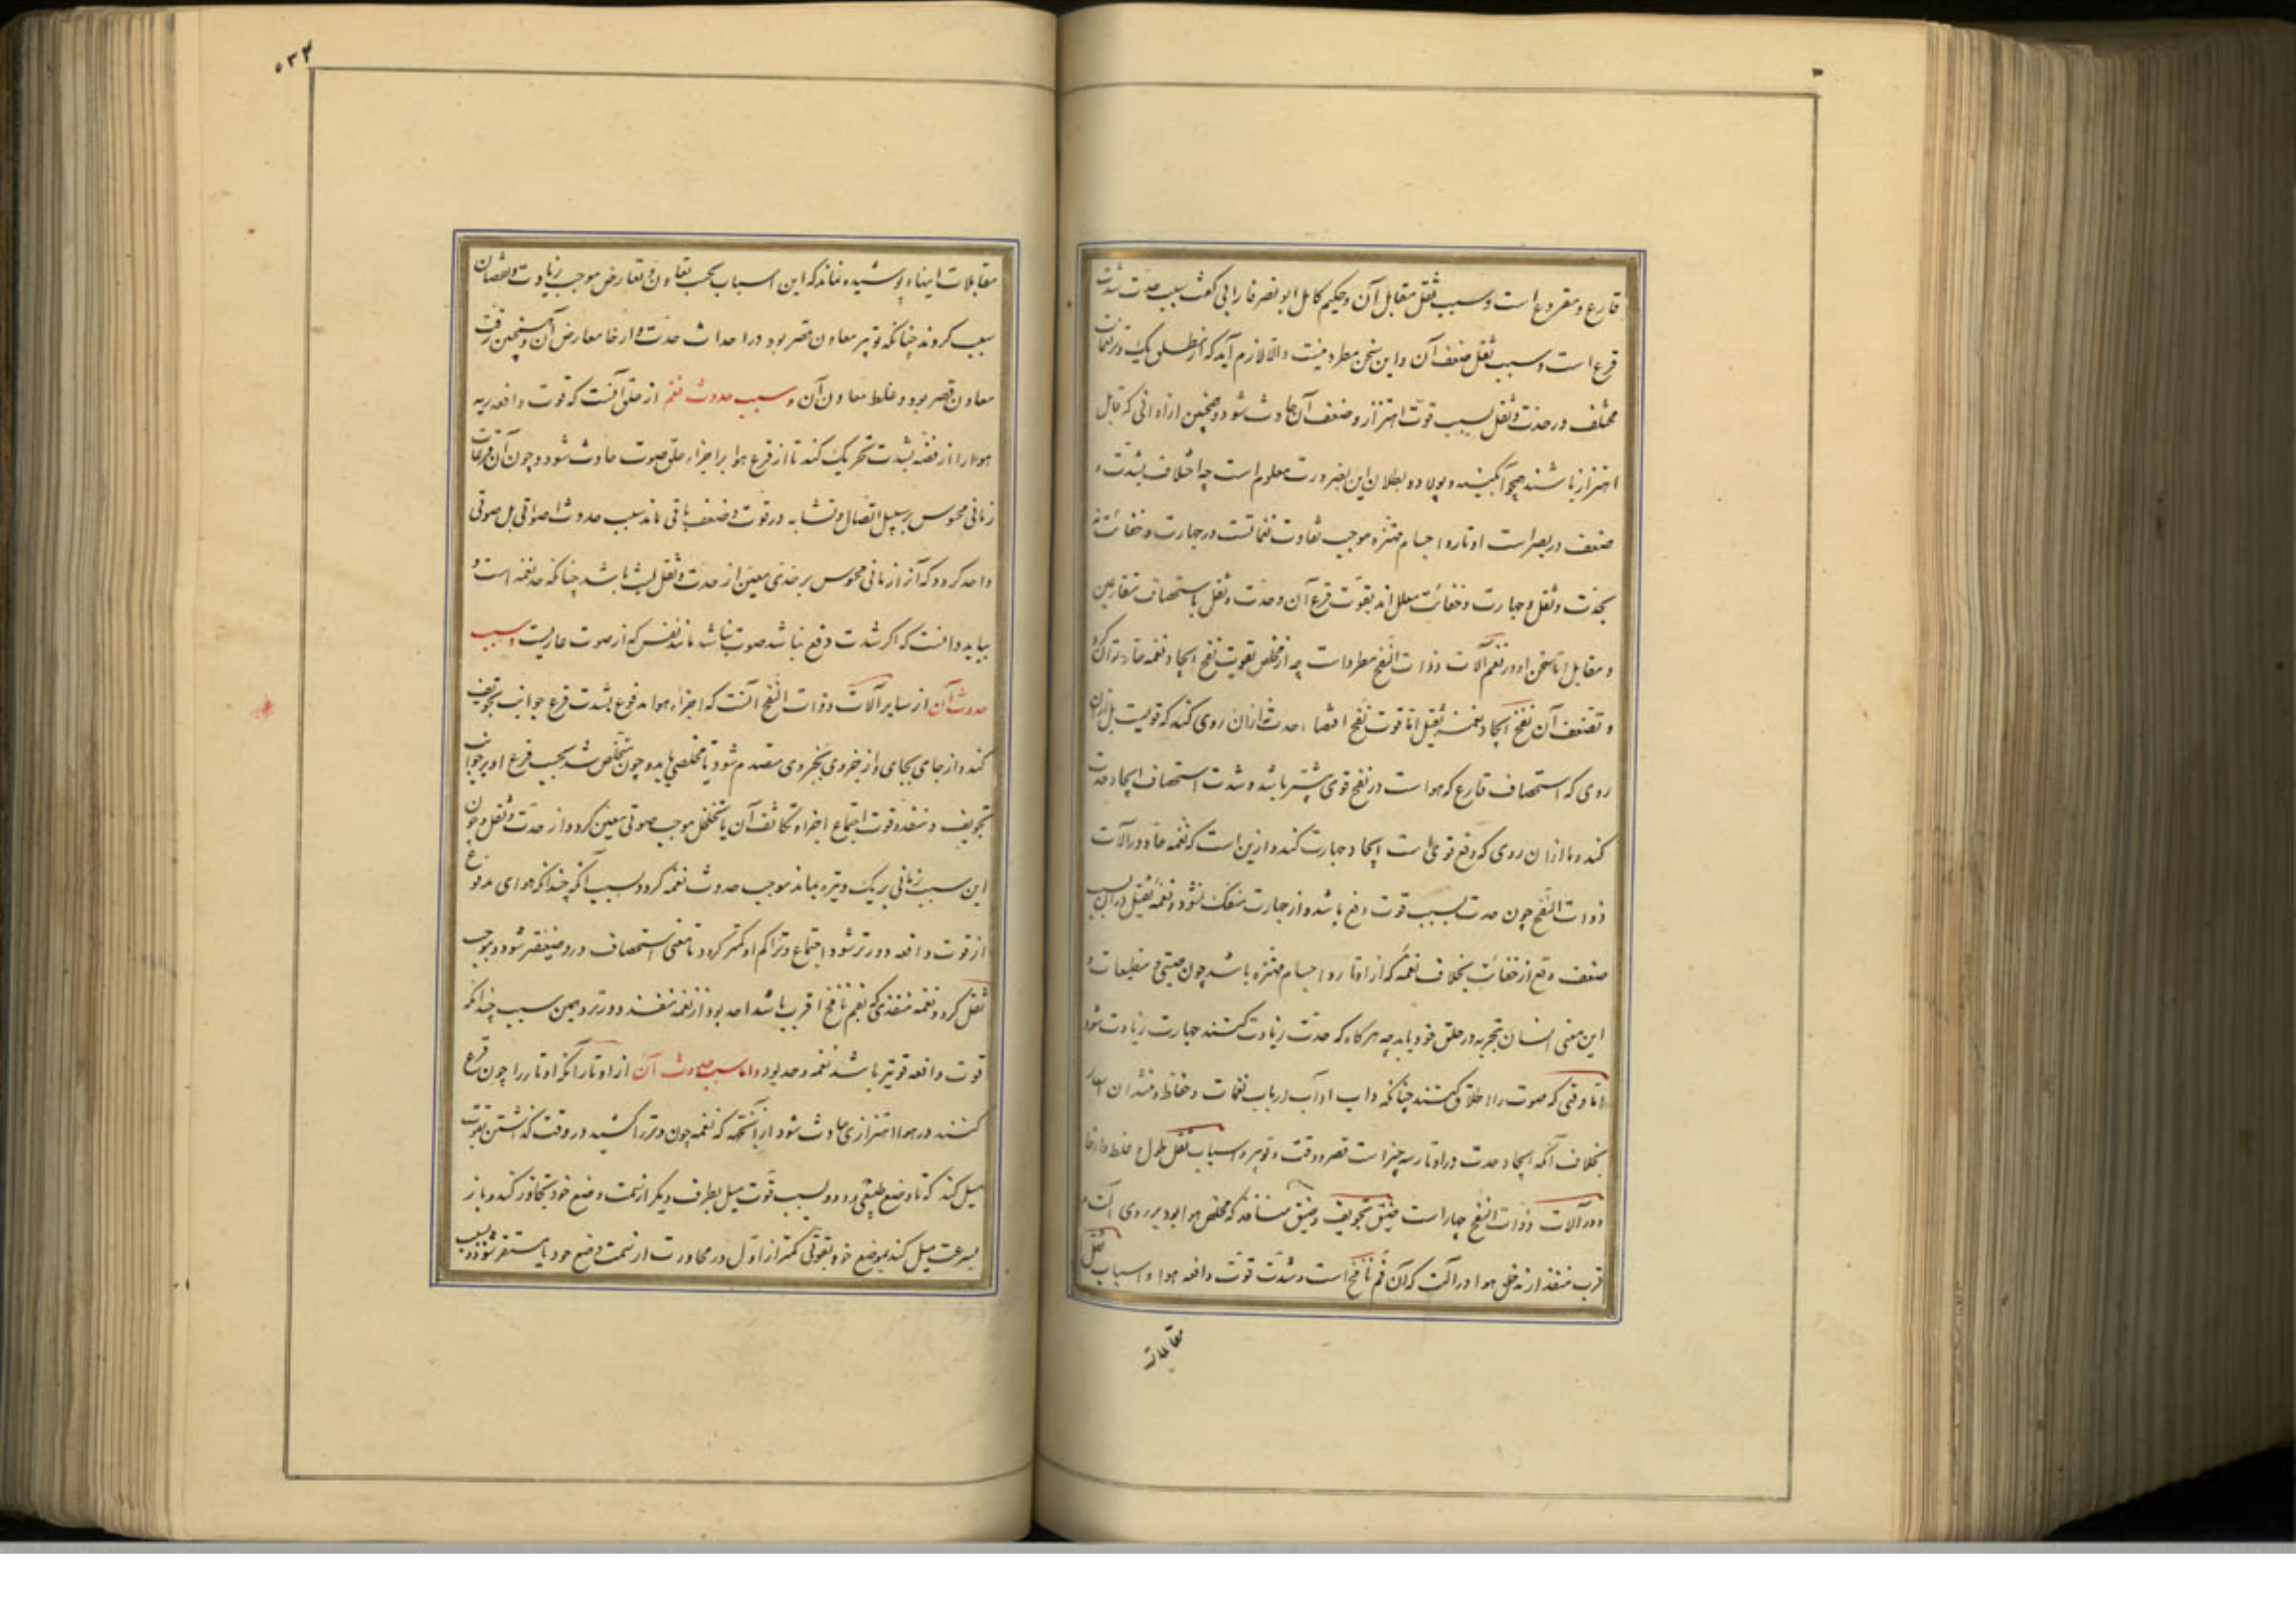 قارع و مقروع است و سبب ثقل مقابل آن و حکیم کامل ابو نصر فارابی گفت سبب حدت شدت
قرع است و سبب ثقل ضعف آن و این سخن مطرد نیست والا لازم آید که از مطلق یک وتر نغمات
مختلف در حدت و ثقل بسبب قوت اهتزاز و ضعف آن حادث شود و همچنین از اوانی که قابل
اهتزاز باشند همچو آبگینه و پولاد و بطلان این بضرورت معلوم است چه اختلاف بشدت و
ضعف در اوتار و اجسام مهتزه موجب تفاوت نغماتست در جهارت و خفائت نه
بحدت و ثقل و جهارت و خفائت معلل اند بقوت قرع آن و حدت و ثقل باستحصاف متقارعین
و مقابل اما سخن او در نغم آلات ذوات النفخ مطرد است چه از مخلص تقویت نفخ ایجاد نغمه حاده توان کرد
و تضعف آن نفخ ایجاد نغمه ثقیل اما قوت نفخ اقتضاء حدت نه ازان روی کند که قویست بل ازان
روی که استحصاف قارع که هواست در نفخ قوی بیشتر باشد و شدت استحصاف ایجاد حدت
کند و اما ازان روی که دفع قوی است ایجاد جهارت کند و ازین است که نغمه حاده در آلات
ذوات النفخ چون حدت بسبب قوت دفع باشد و از جهارت منفک نشود و نغمه ثقیل دران بسبب
ضعف دفع از خفائت بخلاف نغمه که از اوتار و اجسام مهتزه باشد چون صینی و منطبعات و
این معنی انسان بتجربه در حلق خود یابد چه هرگاه که حدت زیادت کنند جهارت زیادت شود
اما وقتی که صوت را اطلاق کنند چنانکه داب ارباب نغمات و حفاظ و منشدان اشعار
بخلاف آنکه ایجاد حدت در اوتار سه چیز است قصر و دقت و توتیر و اسباب ثقل طول و غلظ و ارخا
و در آلات ذوات النفخ چهار است ضیق تجویف و ضیق منافذ که مخلص هوا بود بر روی آلت و
قرب منفذ از مدخل هوا در آلت که آن فم نافخ است و شدت قوت دافعه هوا و اسباب ثقل
مقابلات
۵۳۴
مقابلات اینها و پوشیده نماند که این اسباب بحسب تعاون و تعارض موجب زیادت و نقصان
سبب گردند چنانکه توتیر معاون قصر بود در احداث حدت و ارخا معارض آن و همچنین دقت
معاون قصر بود و غلظ معاون آن و سبب حدوث نغم از حلق آنست که قوت دافعه ریه
هوا را از قصبه بشدت تحریک کند تا از قرع هوا بر اجزاء حلق صوت حادث شود و چون آن قرعات
زمانی محسوس بر سبیل اتصال و تشابه در قوت و ضعف باقی ماند سبب حدوث اصواتی بل صوتی
واحد گردد که آنرا زمانی محسوس بر حدی معین از حدت و ثقل لبث باشد چنانکه حد نغمه است و
بباید دانست که اگر شدت دفع نباشد صوت نباشد مانند نفس که از صوت عاریست و سبب
حدوث آن از سایر آلات ذوات النفخ آنست که اجزاء هوا مدفوع بشدت قرع جوانب تجویف
کند و از جای بجای و از جزوی بجزوی مصدم شود تا مخلصی یابد و چون متخلص شد بحسب قرع او بر جوانب
تجویف و منفذ و قوت اجتماع اجزاء و تکاثف آن یا تخلخل موجب صوتی معین گردد از حدت و ثقل و چون
این سبب زمانی بر یک وتیره بماند موجب حدوث نغمه گردد و بسبب آنکه چندانکه هوای مدفوع
از قوت دافعه دورتر شود اجتماع و تراکم او کمتر گردد تا معنی استحصاف درو ضعیفتر شود و موجب
ثقل گردد نغمه منفذی که بفم نافخ اقرب باشد احد بود از نغمه منفذ دورتر و بهمین سبب چندانکه
قوت دافعه قویتر باشد نغمه احد بود و اما سبب حدوث آن از اوتار آنکه اوتار را چون قرع
کنند در هوا اهتزازی حادث شود ازانجهت که نغمه چون وتر را کشیده در وقت گذاشتن بقوت
میل کند که تا وضع طبیعی رود و بسبب قوت میل بطرف دیگر از سمت وضع خود تجاوز کند و باز
بسرعت میل کند بموضع خود بقوتی کمتر از اول در مجاورت از سمت وضع خود تا مستقر شود و بسبب